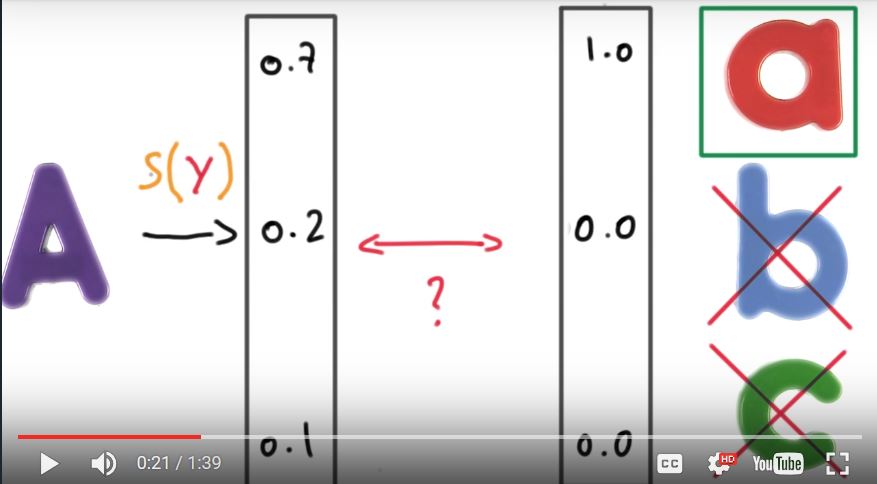 A
S(y)
0.7
0.2
0.1
?
1.0
0.0
0.0
a
b
c
0:21 / 1:39
CC
HD
YouTube